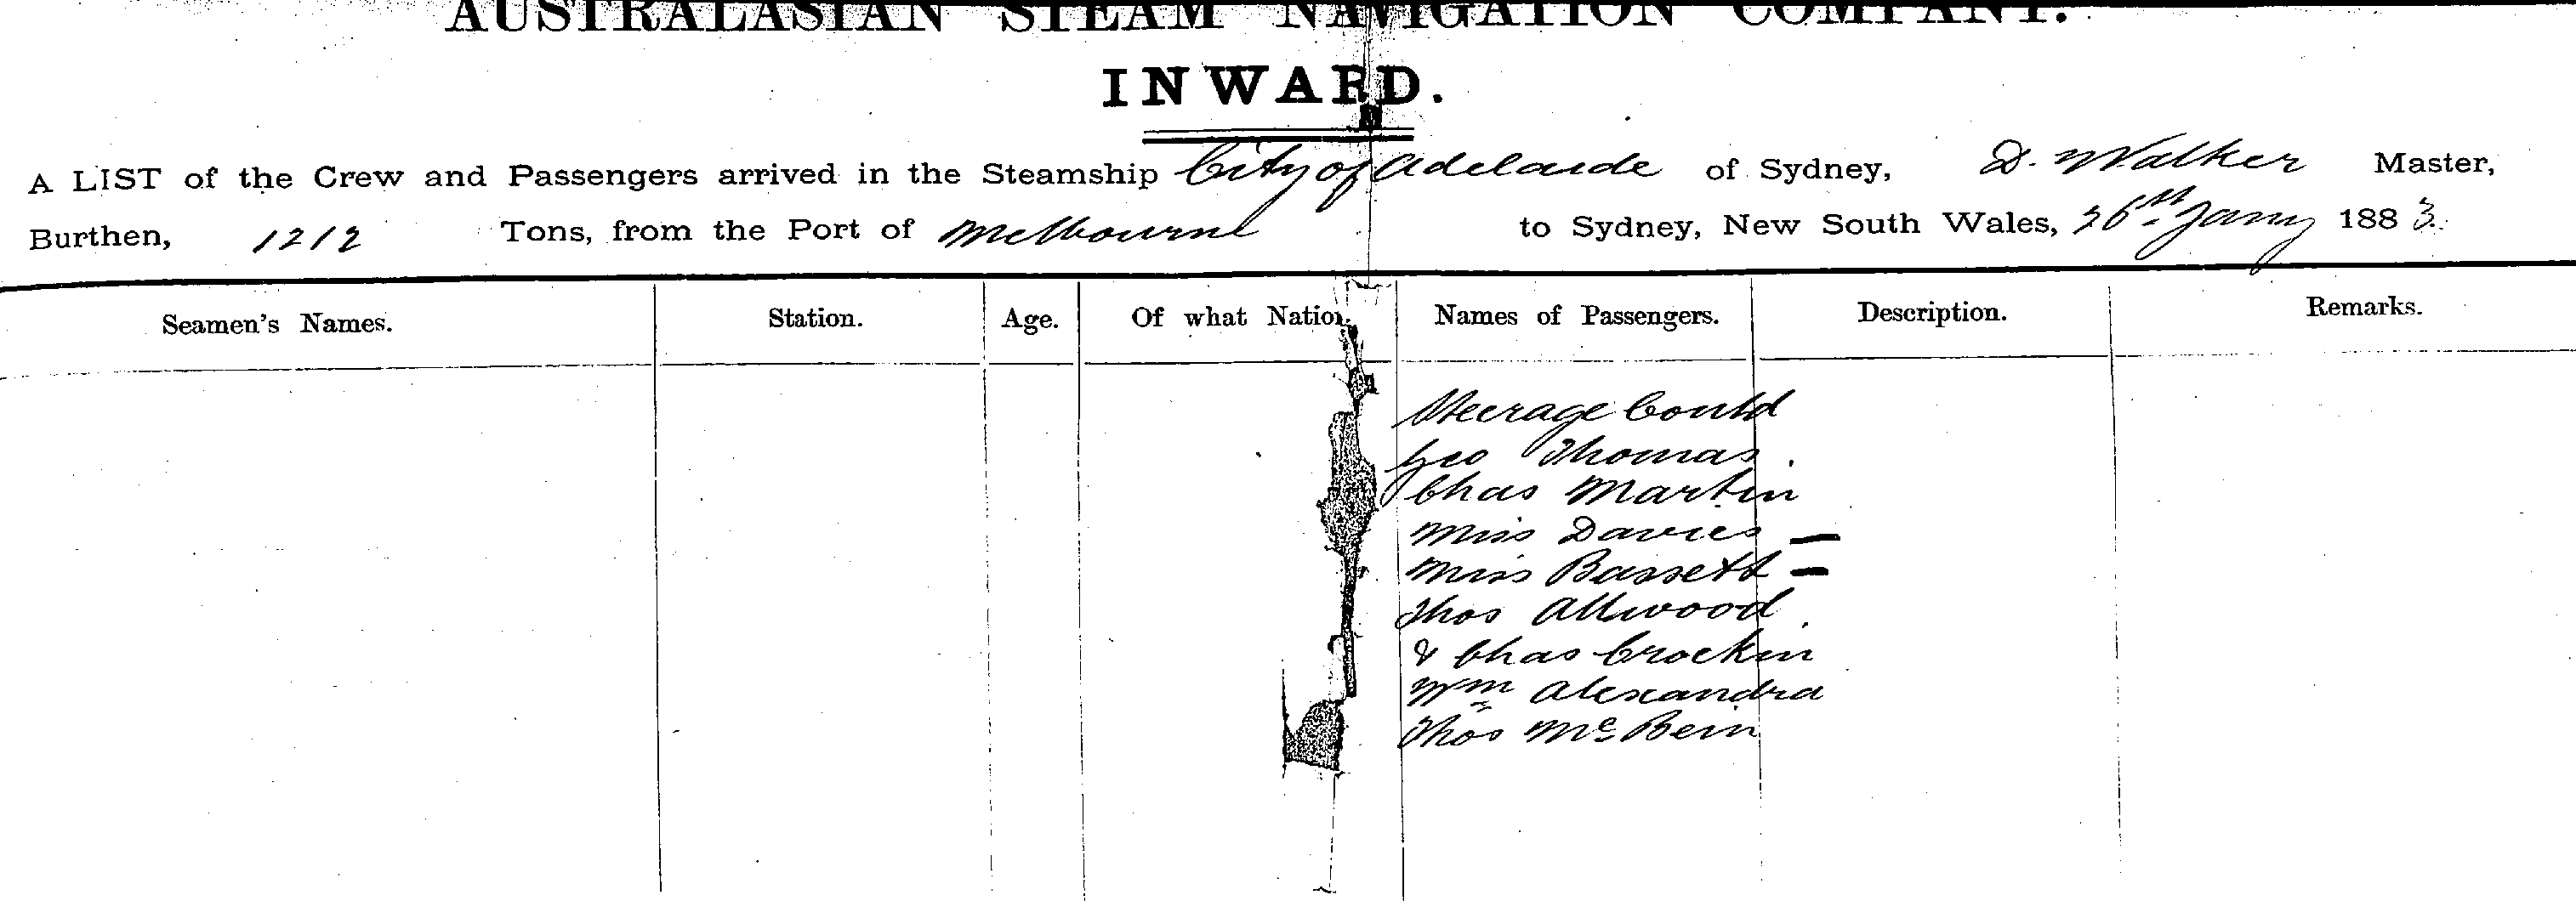 AUSTRALASIAN STEAM NAVIGATION COMPANY.
INWARD.
A LIST of the Crew and Passengers arrived in the Steamship City of Adelaide of Sydney, D. Walker Master,
Burthen, 1212 Tons, from the Port of Melbourne to Sydney, New South Wales, 26th Jany 1883.
Seamen's Names. Station. Age. Of what Nation. Names of Passengers. Description. Remarks.
Steerage Contd
Geo Thomas
Chas Martin
Miss Davies —
Miss Bassett —
Thos Allwood
& Chas Crockin
Wm Alexandra
Thos McBein